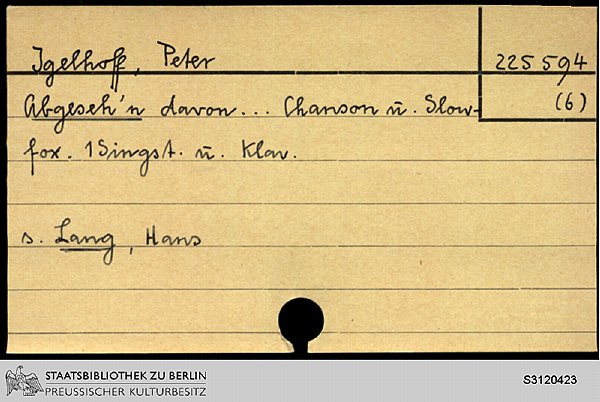 Igelhoff, Peter
225 594
Abgeseh'n davon... Chanson u. Slow-
(6)
fox. 1 Singst. u. Klav.
s. Lang, Hans
STAATSBIBLIOTHEK ZU BERLIN
PREUSSISCHER KULTURBESITZ
S3120423